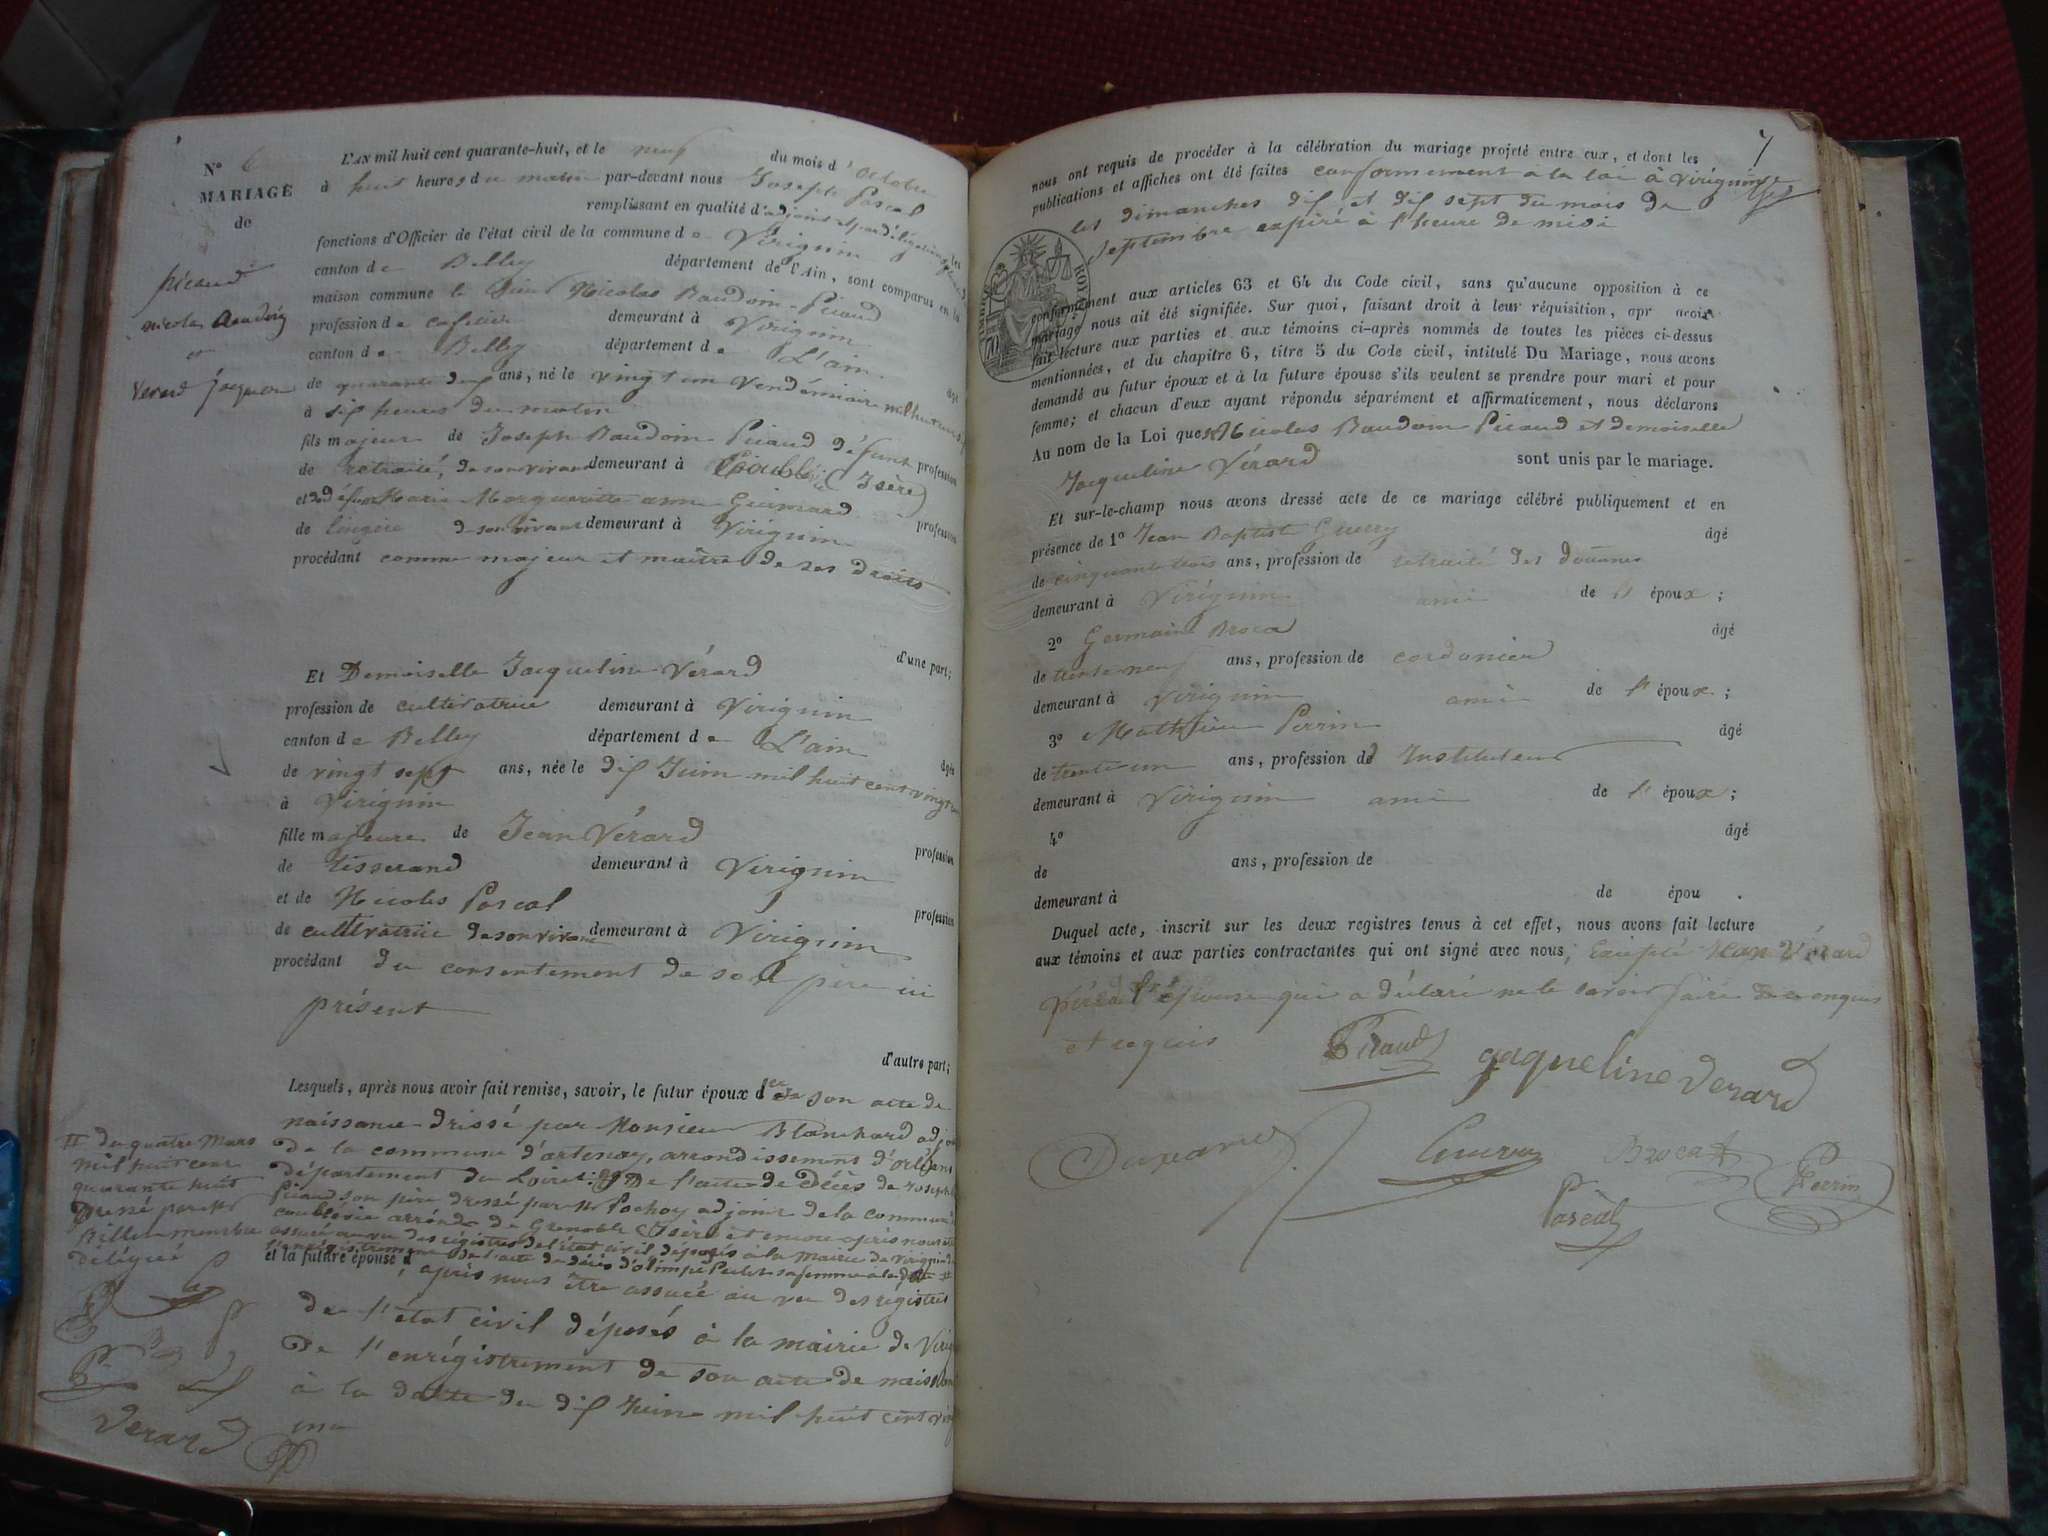 N° 6
MARIAGE
de
picaud
nicolas Baudoin
et
verard jacqueline
L'AN mil huit cent quarante-huit, et le neuf du mois d'Octobre
à huit heures du matin par-devant nous Joseph Pascal
remplissant en qualité d'adjoint et par délégation les
fonctions d'Officier de l'état civil de la commune de Virignin
canton de Belley département de l'Ain, sont comparus en la
maison commune le Sieur Nicolas Baudoin Picaud
profession de cafetier demeurant à Virignin
canton de Belley département de L'ain âgé
de quarante sept ans, né le vingt un Vendémiaire mil huit cent
à six heures du matin
fils majeur de Joseph Baudoin Picaud défunt profession
de retraité, de son vivant demeurant à Coublevie (Isère)
et de défunte Marie Margueritte anne Guimard profession
de lingère de son vivant demeurant à Virignin
procédant comme majeur et maître de ses droits
d'une part;
Et Demoiselle Jacqueline Vérard
profession de cultivatrice demeurant à Virignin
canton de Belley département de L'ain âgée
de vingt sept ans, née le dix Juin mil huit cent vingt un
à Virignin
fille majeure de Jean Vérard profession
de Tisserand demeurant à Virignin
et de Nicolas Pascal profession
de cultivatrice de son vivant demeurant à Virignin
procédant du consentement de son père ici
présent
d'autre part;
Lesquels, après nous avoir fait remise, savoir, le futur époux de son acte de
naissance dressé par Monsieur Blanchard adjoint
de la commune d'artenay, arrondissement d'Orléans
département du Loiret; de l'acte de décès de Joseph
Picaud son père dressé par Mr Pochoy adjoint de la commune de
coublevie arrond. de Grenoble (Isère) et encore après nous être
assuré au vu des régistres de l'état civil déposés à la mairie de Virignin de
l'enrégistrement de l'acte de décès d'olimpe sa femme à la date #
et la future épouse d, après nous être assuré au vu des régistres
de l'état civil déposés à la mairie de Virignin
De l'enrégistrement de son acte de naissance
à la datte du dix Juin mil huit cent vingt
un
# du quatre Mars
mil huit cent
quarante huit
dressé par Mr
Billiemembre
délégué
Verard
7
nous ont requis de procéder à la célébration du mariage projeté entre eux, et dont les
publications et affiches ont été faites conformément à la loi à Virignin
les dimanches dix et dix sept du mois de
Septembre expiré à l'heure de midi
conformément aux articles 63 et 64 du Code civil, sans qu'aucune opposition à ce
mariage nous ait été signifiée. Sur quoi, faisant droit à leur réquisition, apr avoir
fait lecture aux parties et aux témoins ci-après nommés de toutes les pièces ci-dessus
mentionnées, et du chapitre 6, titre 5 du Code civil, intitulé Du Mariage, nous avons
demandé au futur époux et à la future épouse s'ils veulent se prendre pour mari et pour
femme; et chacun d'eux ayant répondu séparément et affirmativement, nous déclarons
Au nom de la Loi que Nicolas Baudoin Picaud et demoiselle
Jacqueline Vérard sont unis par le mariage.
Et sur-le-champ nous avons dressé acte de ce mariage célébré publiquement et en
présence de 1° Jean Baptiste Guerry âgé
de cinquante trois ans, profession de retraité des douanes
demeurant à Virignin ami de l' époux;
2° Germain Broca âgé
de trente neuf ans, profession de cordonier
demeurant à Virignin ami de l' époux;
3° Mathieu Perrin âgé
de trente un ans, profession de Instituteur
demeurant à Virignin ami de l' époux;
4° âgé
de ans, profession de
demeurant à de épou.
Duquel acte, inscrit sur les deux registres tenus à cet effet, nous avons fait lecture
aux témoins et aux parties contractantes qui ont signé avec nous, Excepté Jean Vérard
père de l'épouse qui a déclaré ne le savoir faire de ce enquis
et requis
Picaud jaqueline verard
Broca
Perrin
Pascal